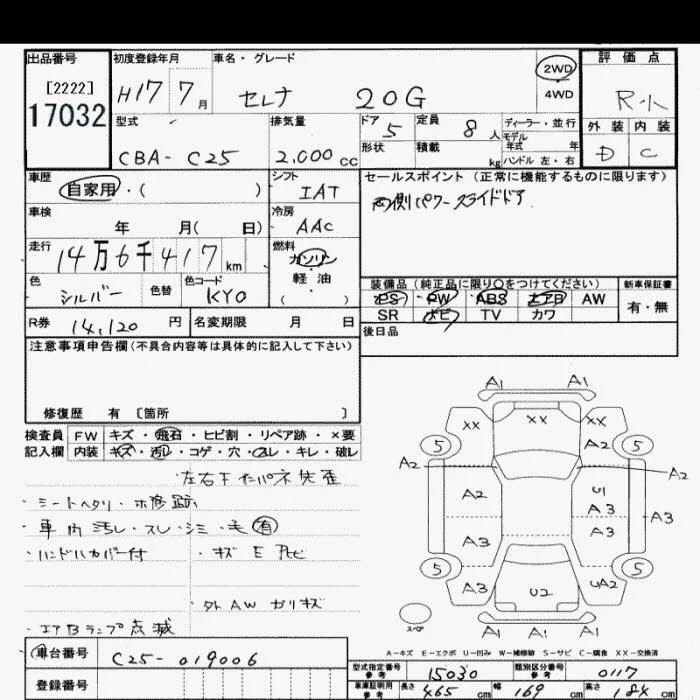 出品番号
[2222]
17032
初度登録年月
H17 7 月
車名・グレード
セレナ 20G
2WD
4WD
評価点
R-小
外装 内装
D C
型式
CBA- C25
排気量
2,000 cc
ドア 5
形状
定員 8 人
積載 kg
ディーラー・並行
モデル年式 年
ハンドル 左・右
車歴
自家用・( )
シフト
IAT
セールスポイント (正常に機能するものに限ります)
両側パワースライドドア
車検
年 月( 日)
冷房
AAC
走行
14万6千417 km
燃料
ガソリン
軽油
( )
色
シルバー
色替
色コード
KY0
装備品 (純正品に限り○をつけてください)
PS PW ABS エアB AW
SR ナビ TV カワ
新車保証書
有・無
R券 14,120 円
名変期限 月 日
後日品
注意事項申告欄 (不具合内容等は具体的に記入して下さい)
修復歴 有 〔箇所 〕
検査員
記入欄
FW キズ・飛石・ヒビ割・リペア跡・×要
内装 キズ・汚レ・コゲ・穴・スレ・キレ・破レ
・シートヘタリ・ホ修跡
・車内汚レ・スレ・シミ・毛有
・ハンドルカバー付
・エアBランプ点滅
外AWガリキズ
A1 A1
XX XX XX
5 A2 5
A2 A2
A2 U1
A3 A3
A3 A3
5 5
A3 U2 UA2
スペ
A1 A1 A1
A-キズ E-エクボ U-凹み W-補修跡 S-サビ C-腐食 XX-交換済
車台番号
C25-019006
登録番号
型式指定番号
参考
15030
類別区分番号
参考
0117
車庫証明用
参考
長さ 465 cm
幅 169 cm
高さ 84 cm